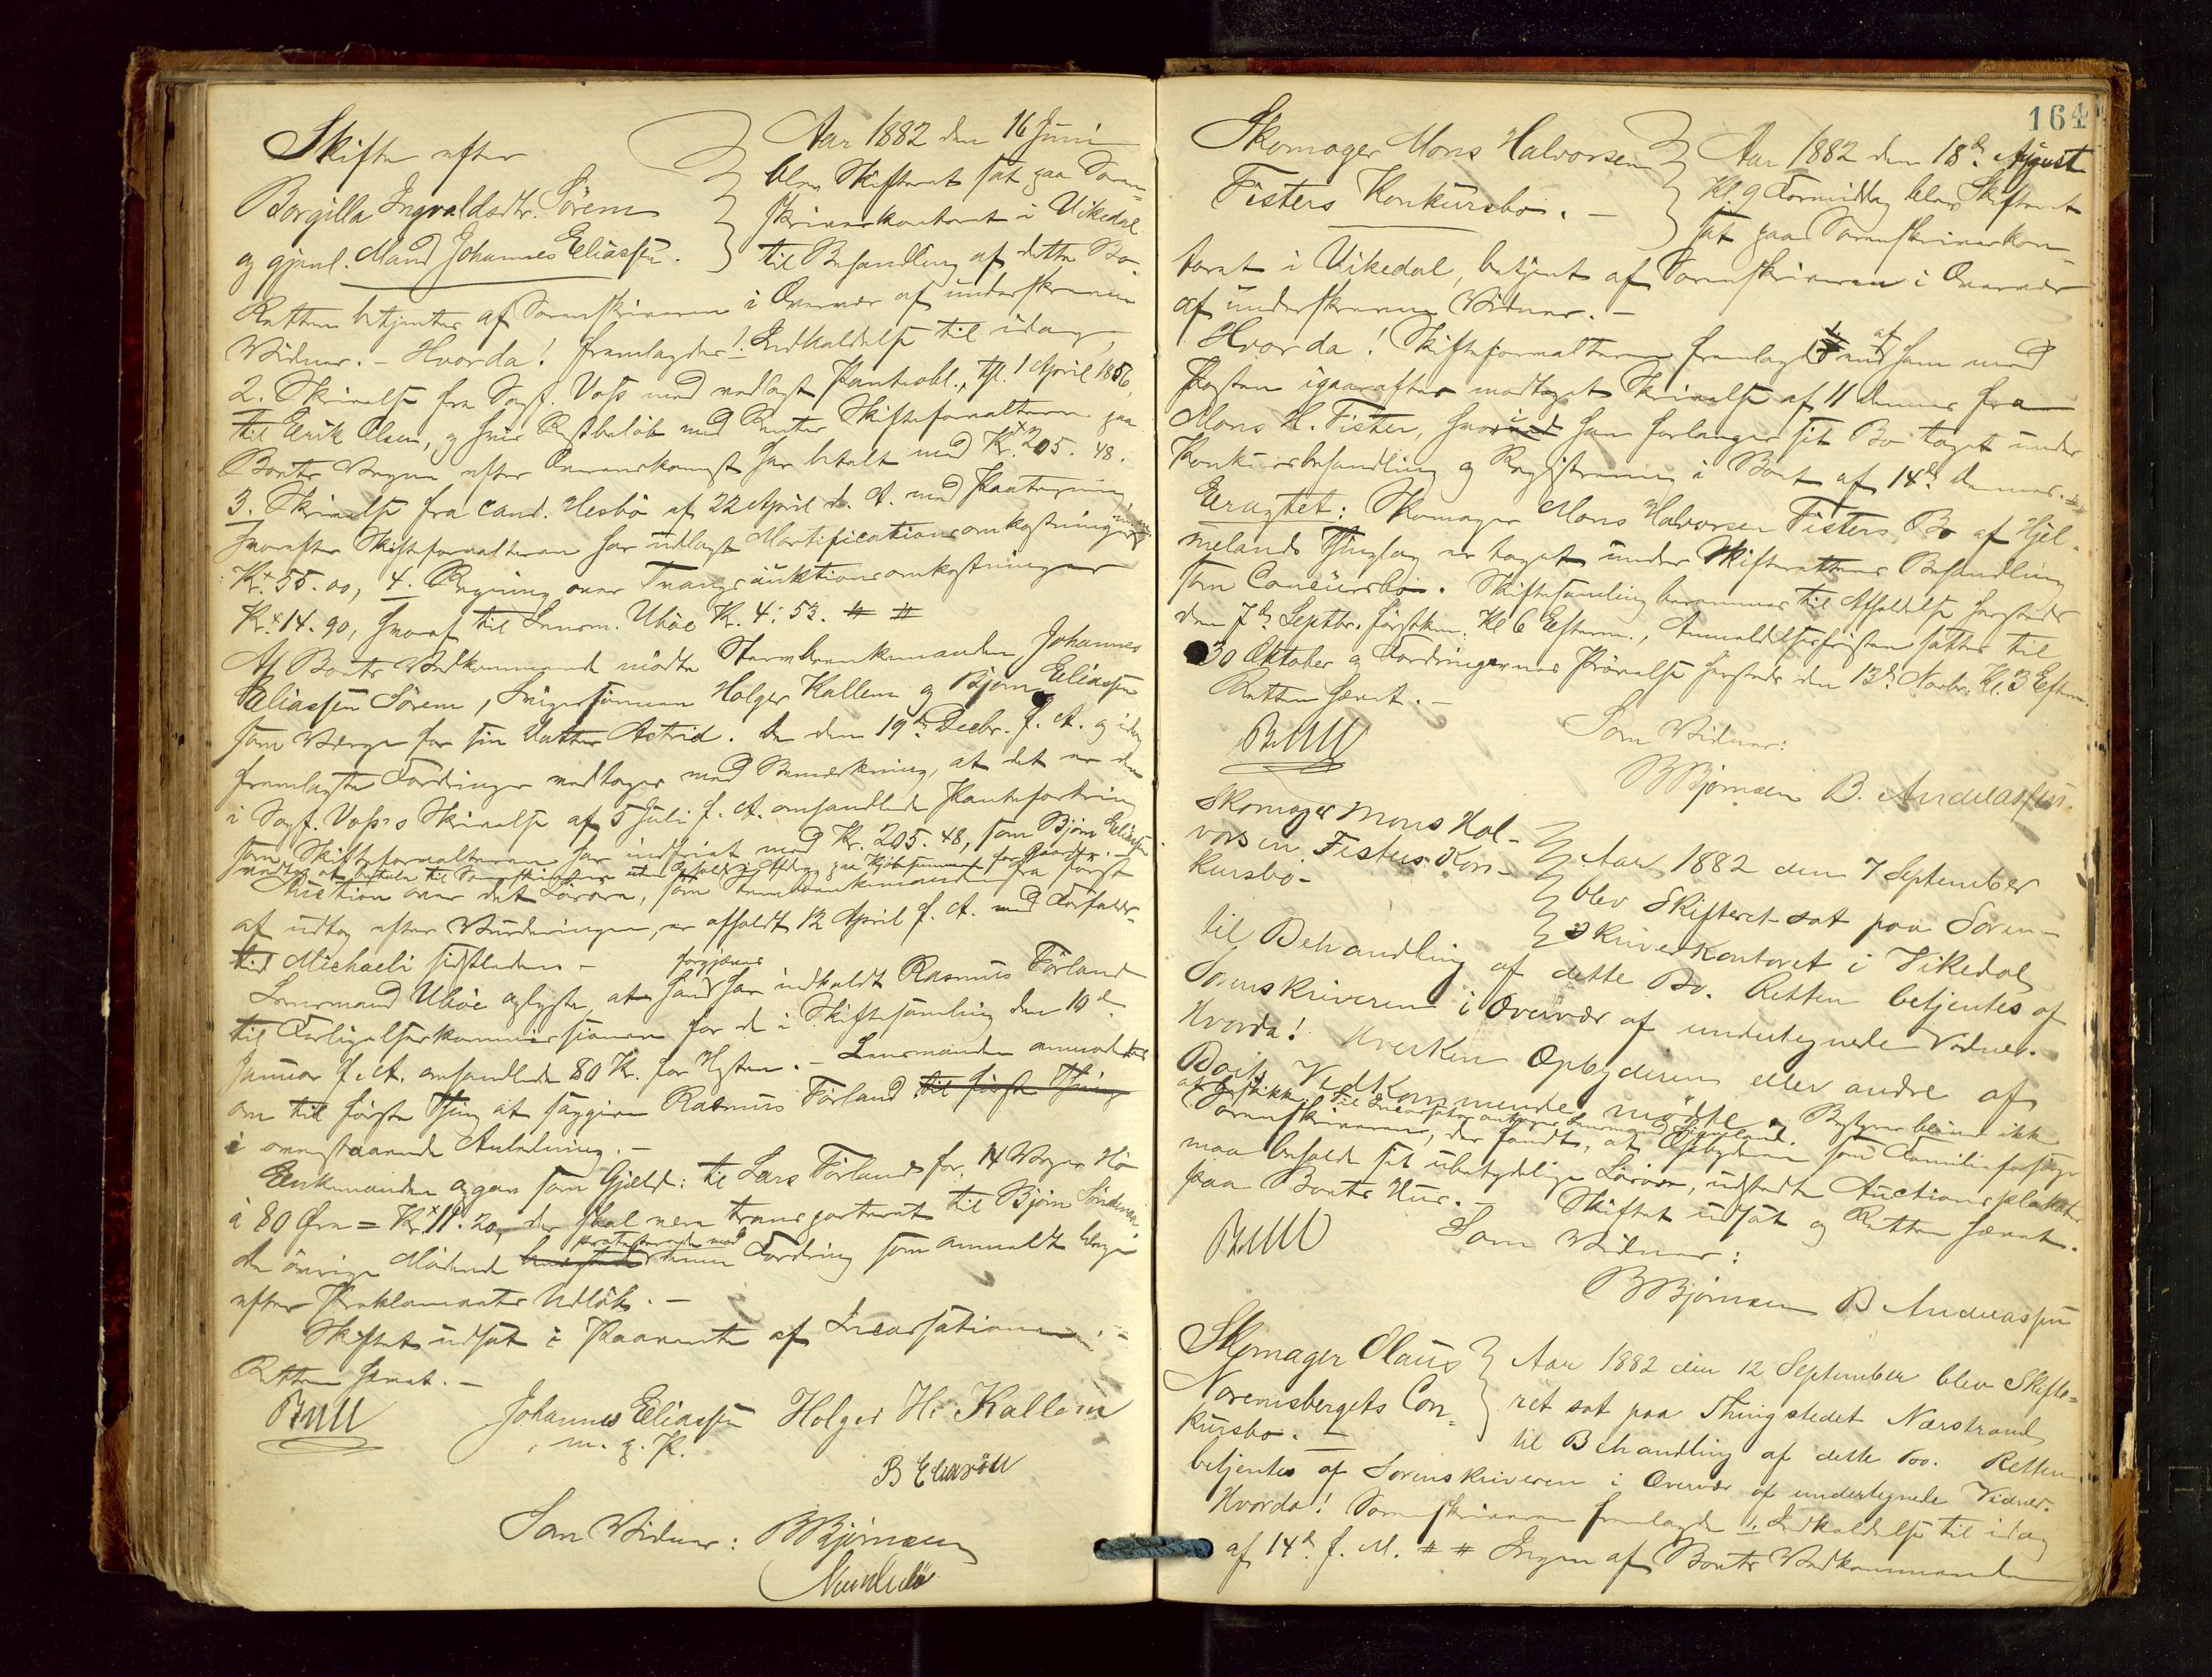 Skifte efter
Borgilla Ingvaldsdtr. Sörem
og gjenl. Mand Johannes Eliassen.
Aar 1882 den 16 Juni
blev Skifteret sat paa Soren-
skriverkontoret i Vikedal
til Behandling af dette Bo.
Retten betjentes af Sorenskriveren i Overvær af underskrevne
Vidner. – Hvorda! fremlagdes 1. Indkaldelse til idag,
2. Skrivelse fra Sagf. Voss med vedlagt Panteobl., tgl. 1 April 1856,
til Erik Olsen, og hvis Restbeløb med Renter Skifteforvalteren paa
Boets Vegne efter Overenskomst har betalt med Kr. 205. 48.
3. Skrivelse fra Cand. Hesbö af 22 April d. A. med Paategning
hvorefter Skifteforvalteren har udlagt Mortificationsomkostninger
Kr. 55.00, 4. Regning over Tvangsauktionsomkostninger
Kr. 14.90, hvoraf til Lensm. Uböe Kr. 4: 53. # #
Af Boets Vedkommende mödte Stervboenkemanden Johannes
Eliassen Sörem, Svigersönnen Holger Kallem og Björn Eliassen
som Værge for sin Datter Astrid. De den 19de Decbr. f. A. og idag
fremlagte Fordringer vedtoges med Bemærkning, at det er den
i Sagf. Voss's Skrivelse af 5 Juli f. A. omhandlede Pantefordring
som Skifteforvalteren har indfriet med Kr. 205. 48, som Björn Eliassen
vedtog at betale til Sorenskriveren
Auction over det Lösöre, som Stervboenkemanden fra först
af udtog efter Vurderingen, er afholdt 12 April f. A. med Forfalds-
tid Michaeli sidstleden. –
Lensmand Uböe oplyste, at han forgjæves har indkaldt RasmusFörland
til Forligelseskommissionen for de i Skiftesamling den 10de
Januar f. A. omhandlede 80 Kr. for Hesten. – Lensmanden anmodedes
om til förste Thing at saggive Rasmus Förland til förste Thing
i ovenstaaende Anledning. –
Enkemanden opgav som Gjæld: til Lars Förland for 14 Voger Hö
à 80 Öre = Kr. 11. 20, der skal være transporteret til Björn
de övrige Mödende protesterede mod denne Fordring som anmeldt længe
efter Proklamaets Udlöb. –
Skiftet udsat i Paavente af Incassationen. –
Retten hævet. –
Bull
Johannes Eliassen
m. p. P.
Holger H. Kallem
B Eliasön
Som Vidner: B Bjørnsen
164
Skomager Mons Halvorsen
Fisters Konkursbo. –
Aar 1882 den 18de August
Kl. 9 Formiddag blev Skifteret
sat paa Sorenskriverkon-
toret i Vikedal, betjent af Sorenskriveren i Overvær
af underskrevne Vidner. –
Hvorda! Skifteforvalteren fremlagde 1. en af ham med
Posten igaaraftes modtaget Skrivelse af 11 dennes fra
Mons H. Fister, hvori han forlanger sit Bo taget under
Konkursbehandling og Registrering i Boet af 14de dennes. #
Eragtet: Skomager Mons Halvorsen Fisters Bo af Hjel-
melands Thinglag er taget under Skifterettens Behandling
som Concursbo. Skiftesamling berammes til Afholdelse hersteds
den 7de Septbr. förstkm. Kl 6 Efterm., Anmeldelsesfristen sættes til
30 Oktober og Fordringernes Prövelse hersteds den 13de Novbr. Kl. 3 Efterm.
Retten hævet. –
Bull
Som Vidner:
B Bjørnsen B. Andreassen.
Skomager Mons Hal-
vorsen Fisters Kon-
kursbo –
Aar 1882 den 7 September
blev Skifteret sat paa Soren-
skriverkontoret i Vikedal
til Behandling af dette Bo. Retten betjentes af
Sorenskriveren i Overvær af undertegnede Vidner.
Hvorda! Hverken Opbyderen eller andre af
Boets Vedkommende mødte. Bestyrer blev ikke
at beskikke. Til Incassator antoges Lensmand
Sorenskriveren, der fandt, at Opbyderen som Familieforsörger
maa beholde sit ubetydelige Lösöre, udstedte Auctionsplakater
paa Boets Hus. – Skiftet udsat og Retten hævet.
Bull
Som Vidner:
B Bjørnsen B Andreassen
Skomager Olaus
Noremsbergets Con-
kursbo. –
Aar 1882 den 12 September blev Skifte-
ret sat paa Thingstedet Nærstrand
til Behandling af dette Bo. Retten
betjentes af Sorenskriveren i Overvær af undertegnede Vidner.
Hvorda! Sorenskriveren fremlagde 1. Indkaldelse til idag
af 14de f. M. # # Ingen af Boets Vedkommende